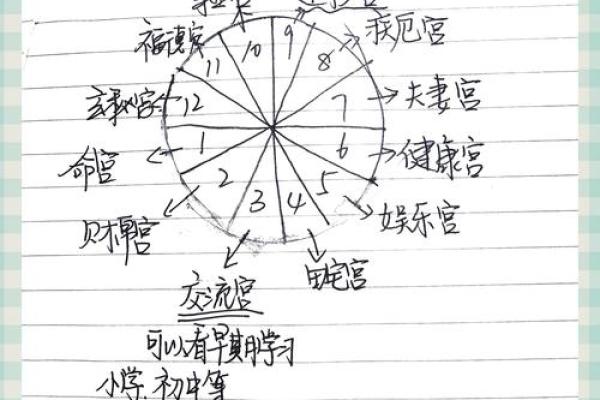 10 9
福德宫 11 8 疾厄宫
玄秘宫 12 7 夫妻宫
命宫 1 6 健康宫
财帛宫 2 3 4 5 娱乐宫
交流宫 田宅宫
可以看早期学习
小学、初中等